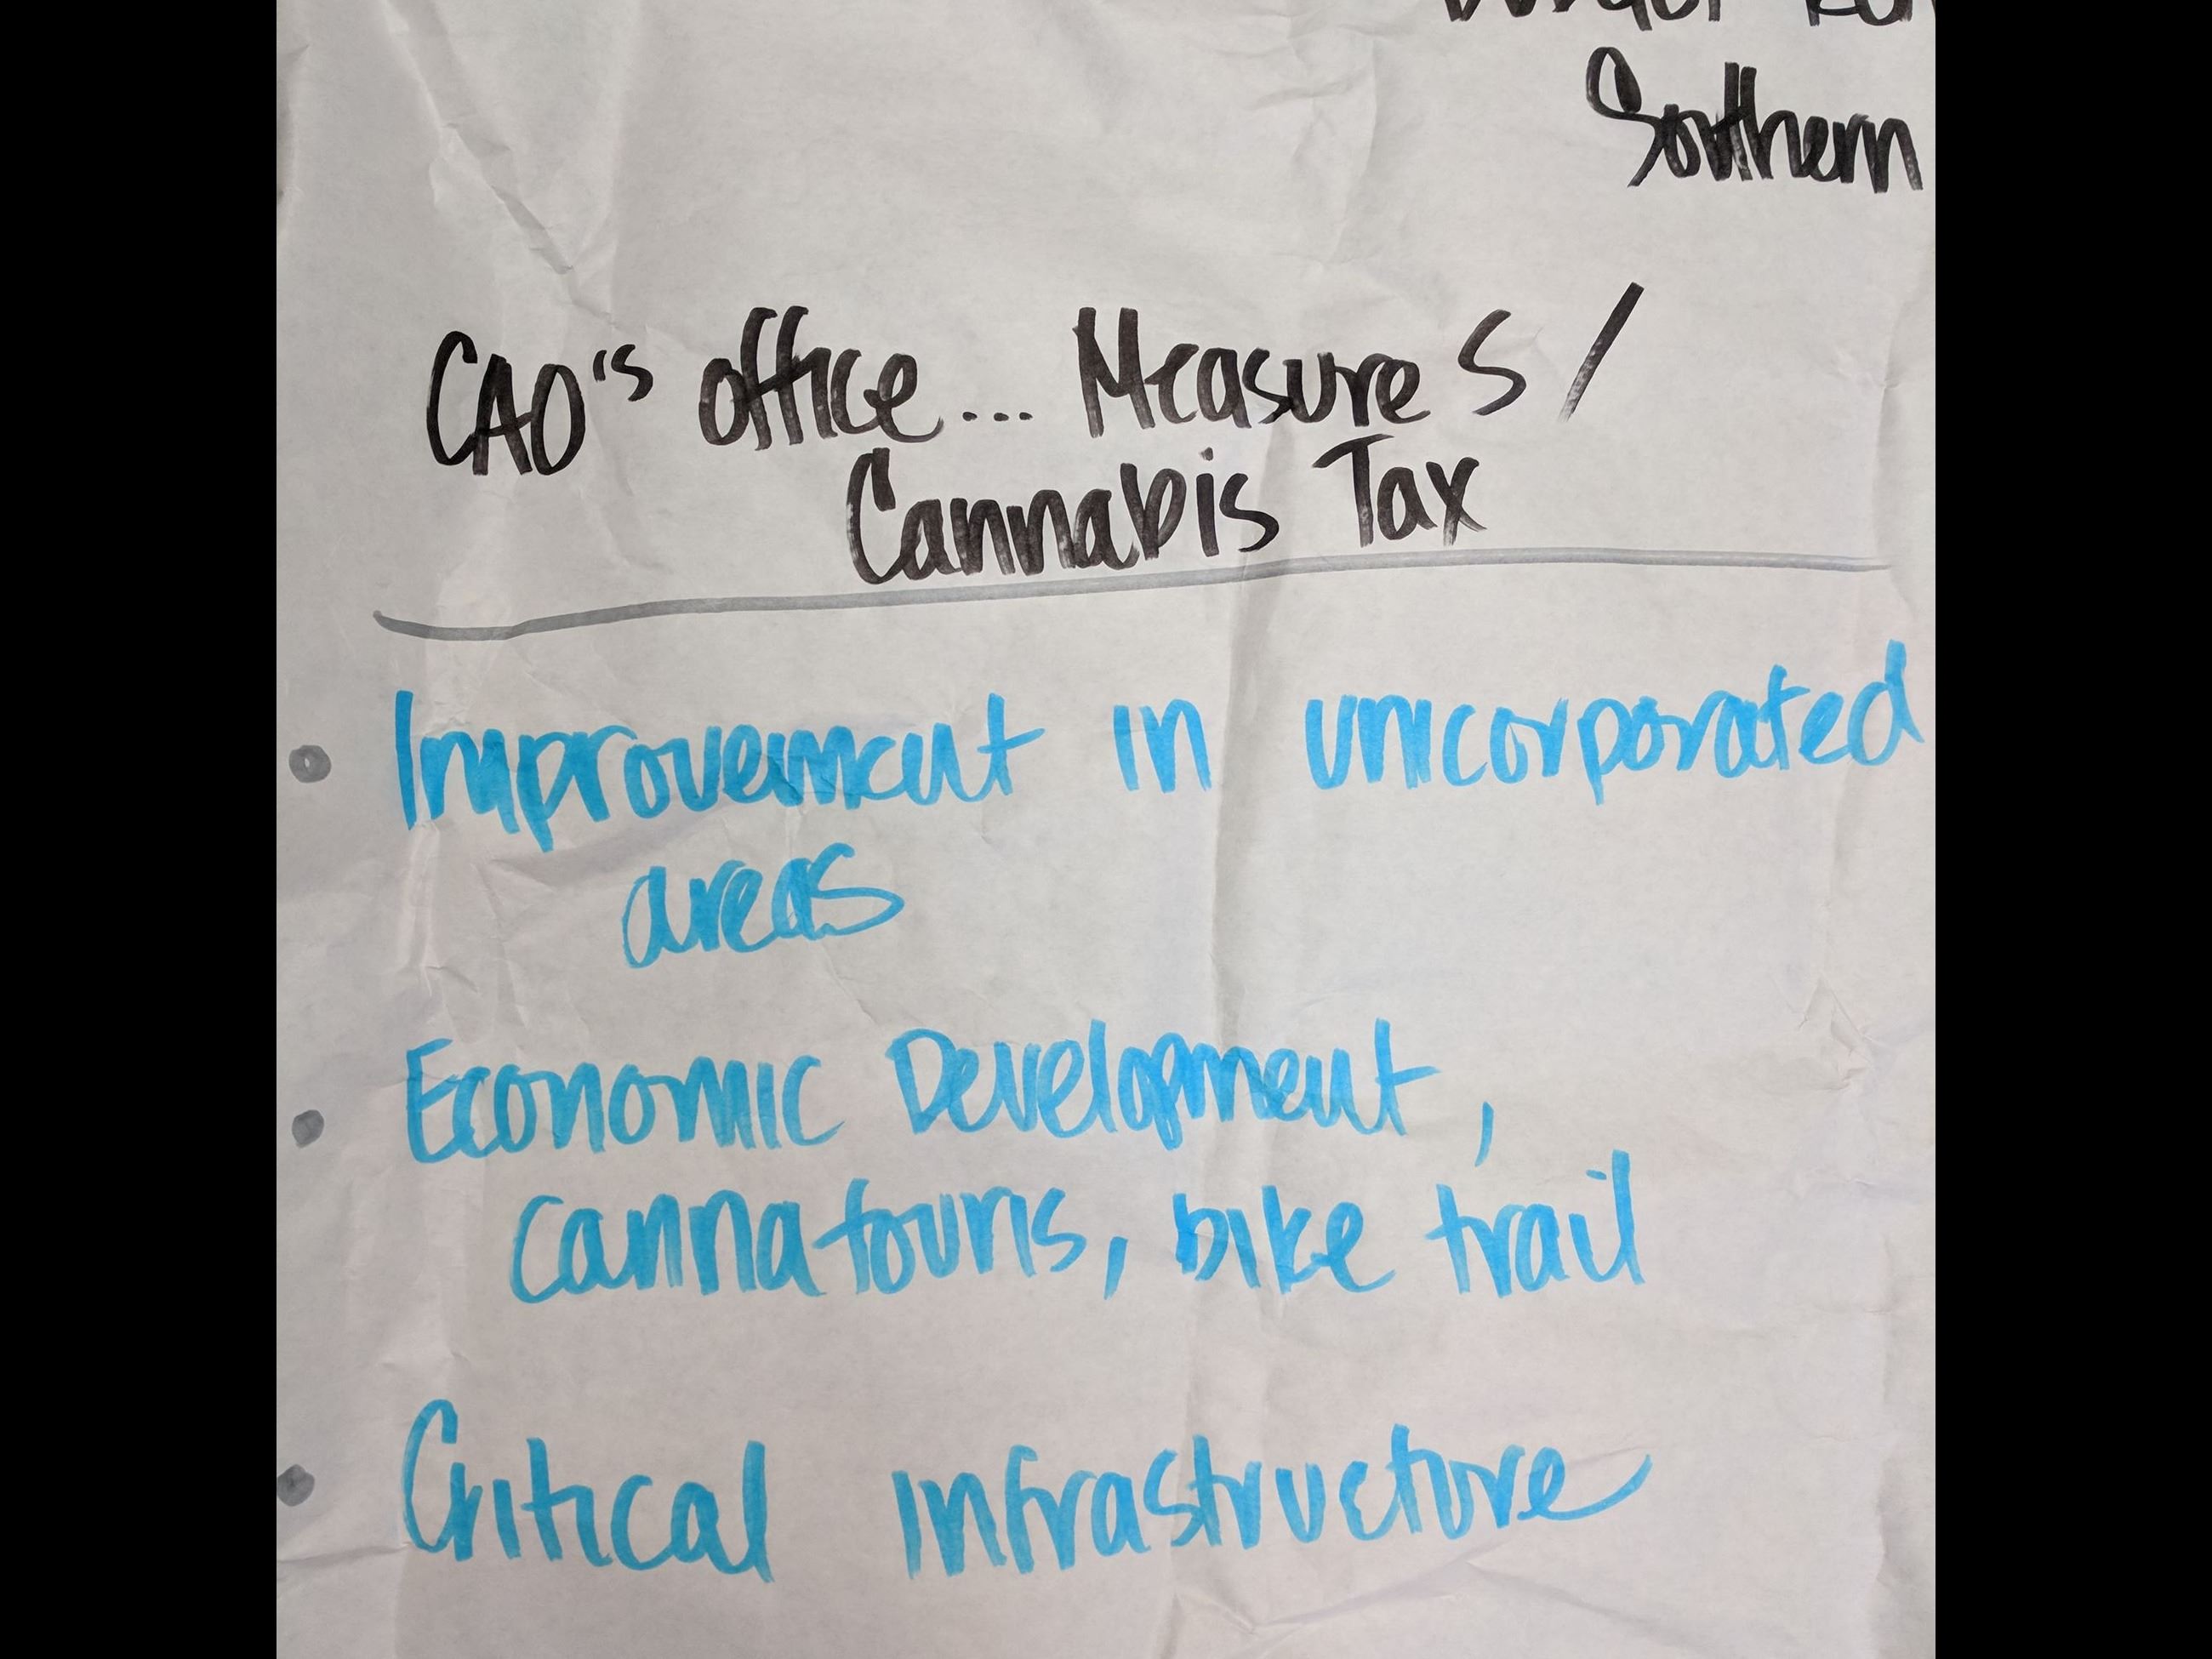 Southern
CAO's office... Measure S /
Cannabis Tax
• Improvement in unicorporated
areas
• Economic Development,
cannatouris, bike trail
• Critical infrastructure